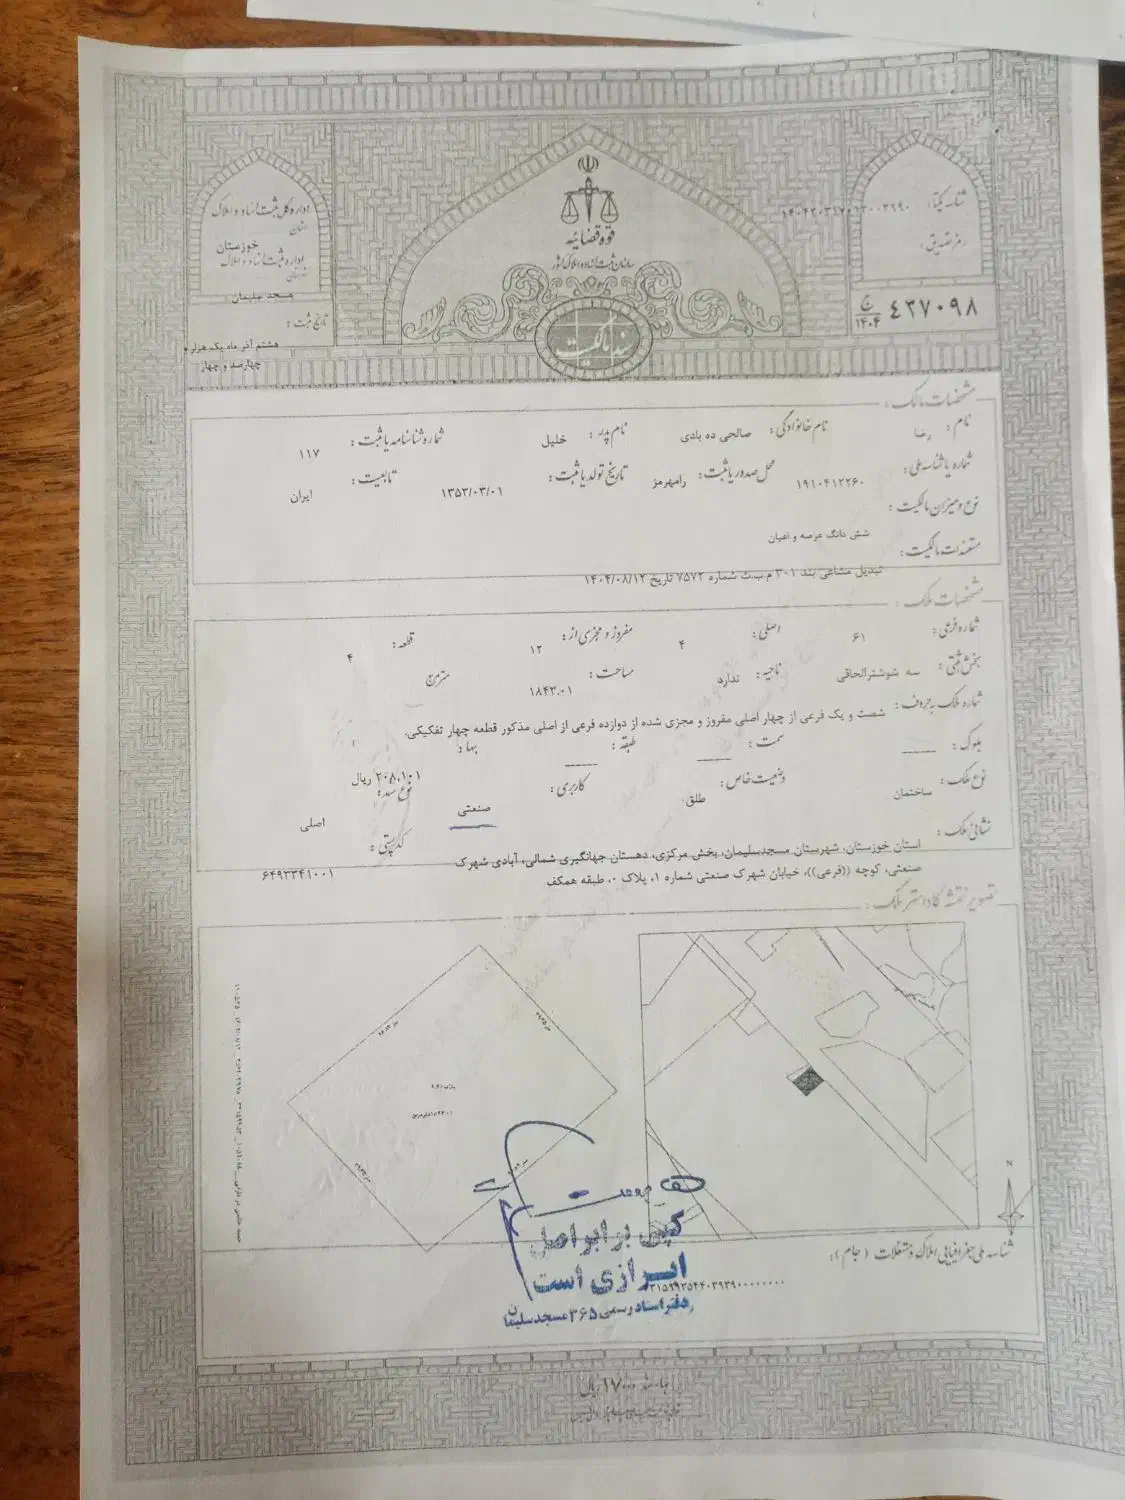 شناسه یکتا:
رمز تصدیق:
۴۳۷۰۹۸ ج ۱۴۰۴
قوه قضائیه
سازمان ثبت اسناد و املاک کشور
سند مالکیت
اداره کل ثبت اسناد و املاک
استان
خوزستان
اداره ثبت اسناد و املاک
مسجد سلیمان
تاریخ ثبت:
هشتم آذر ماه یک هزار و
چهارصد و چهار
مشخصات مالک:
نام: رضا نام خانوادگی: صالحی ده بادی نام پدر: خلیل شماره شناسنامه یا ثبت: ۱۱۷
شماره یا شناسه ملی: ۱۹۱۰۴۱۲۲۶۰ محل صدور یا ثبت: رامهرمز تاریخ تولد یا ثبت: ۱۳۵۳/۰۳/۰۱ تابعیت: ایران
نوع و میزان مالکیت:
شش دانگ عرصه و اعیان
مستندات مالکیت:
تبدیل مشاعی بند ۱-۳ م.ب.ث شماره ۷۵۷۲ تاریخ ۱۴۰۴/۰۸/۱۲
مشخصات ملک:
شماره فرعی: ۶۱ اصلی: ۴ مفروز و مجزی از: ۱۲ قطعه: ۴
بخش ثبتی: سه شوشترالحاقی ناحیه: ندارد مساحت: ۱۸۴۳.۰۱ مترمربع
شماره ملک به حروف: شصت و یک فرعی از چهار اصلی مفروز و مجزی شده از دوازده فرعی از اصلی مذکور قطعه چهار تفکیکی.
بلوک: سمت: طبقه:
۲۰۸,۱۰۱ ریال
نوع ملک: ساختمان وضعیت خاص: طلق کاربری: صنعتی نوع سند: اصلی
نشانی ملک: استان خوزستان، شهرستان مسجدسلیمان، بخش مرکزی، دهستان جهانگیری شمالی، آبادی شهرک
صنعتی، کوچه ((فرعی))، خیابان شهرک صنعتی شماره ۱، پلاک ۰، طبقه همکف
کدپستی: ۶۴۹۳۳۴۱۰۰۱
تصویر نقشه کاداستر ملک:
N
کپی برابر اصل
ابرازی است
دفتر اسناد رسمی ۳۶۵ مسجدسلیمان
شناسه ملی جغرافیایی املاک و مستغلات (جام):